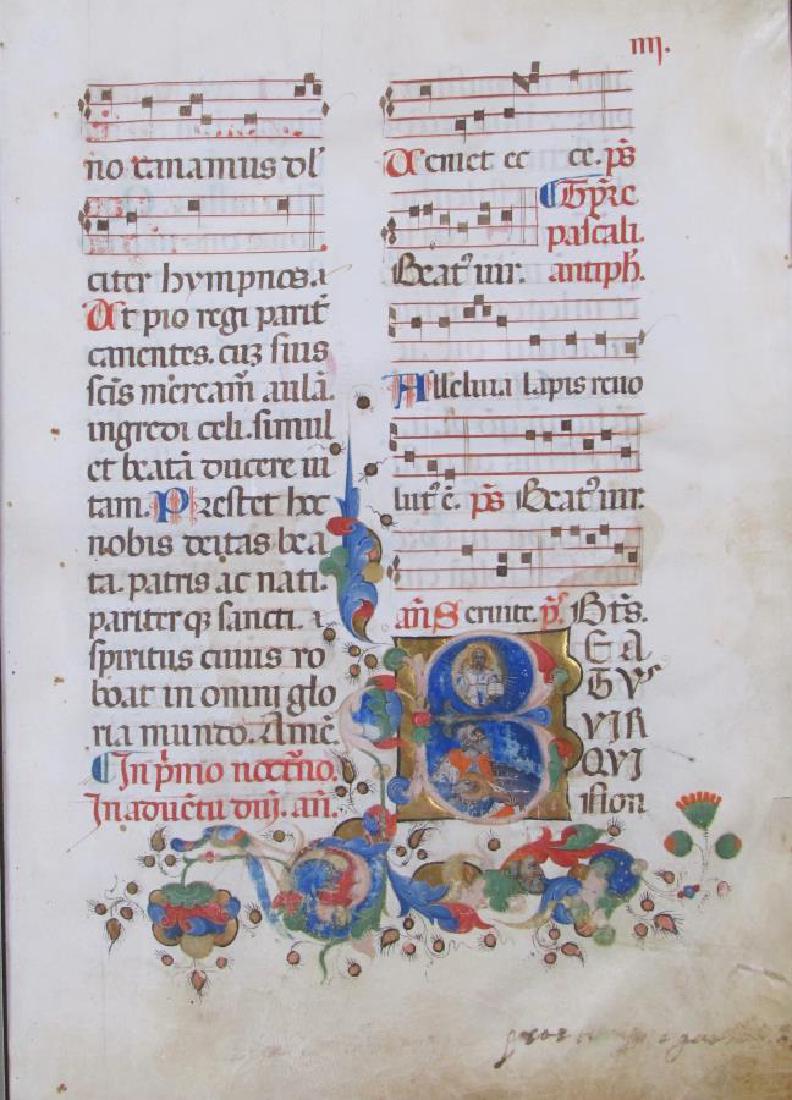 iiij.
no canamus dul
citer hympnos.
At pio regi parit᷑
canentes. cuʒ suis
scīs meream̄ aulā.
ingredi celi. simul
et beatā ducere ui
tam. Prestet hoc
nobis deitas bea
ta. patris ac nati.
pariterqʒ sancti.
spiritus cuius ro
boat in omni glo
ria mundo. Amē
In p̄mo noct̄no.
In aduētu dn̄i. an̄.
Veniet ec ce. p̄s
Tp̄re
pascali.
Beat᷒ uir. antiph̄.
Alleluia lapis reuo
lut᷒ ē. p̄s Beat᷒ uir.
an̄ Seruite. p̄s. Bt̄s.
BEA
TVS
VIR
QVI
non